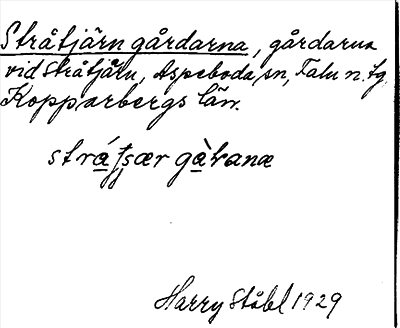 Stråtjärn gårdarna, gårdarna
vid Stråtjärn, Aspeboda sn, Falu n. tg.
Kopparbergs län.
gåranæ
Harry Ståhl 1929